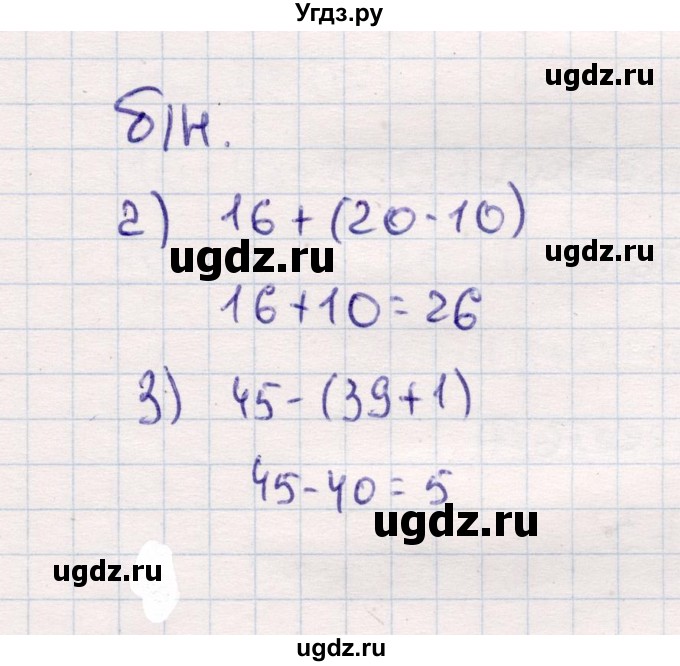 Угдз.ру
ugdz.ru
б/н.
2) 16 + (20 - 10)
ugdz.ru
16 + 10 = 26
3) 45 - (39 + 1)
45 - 40 = 5
ugdz.ru
ugdz.ru
ugdz.ru